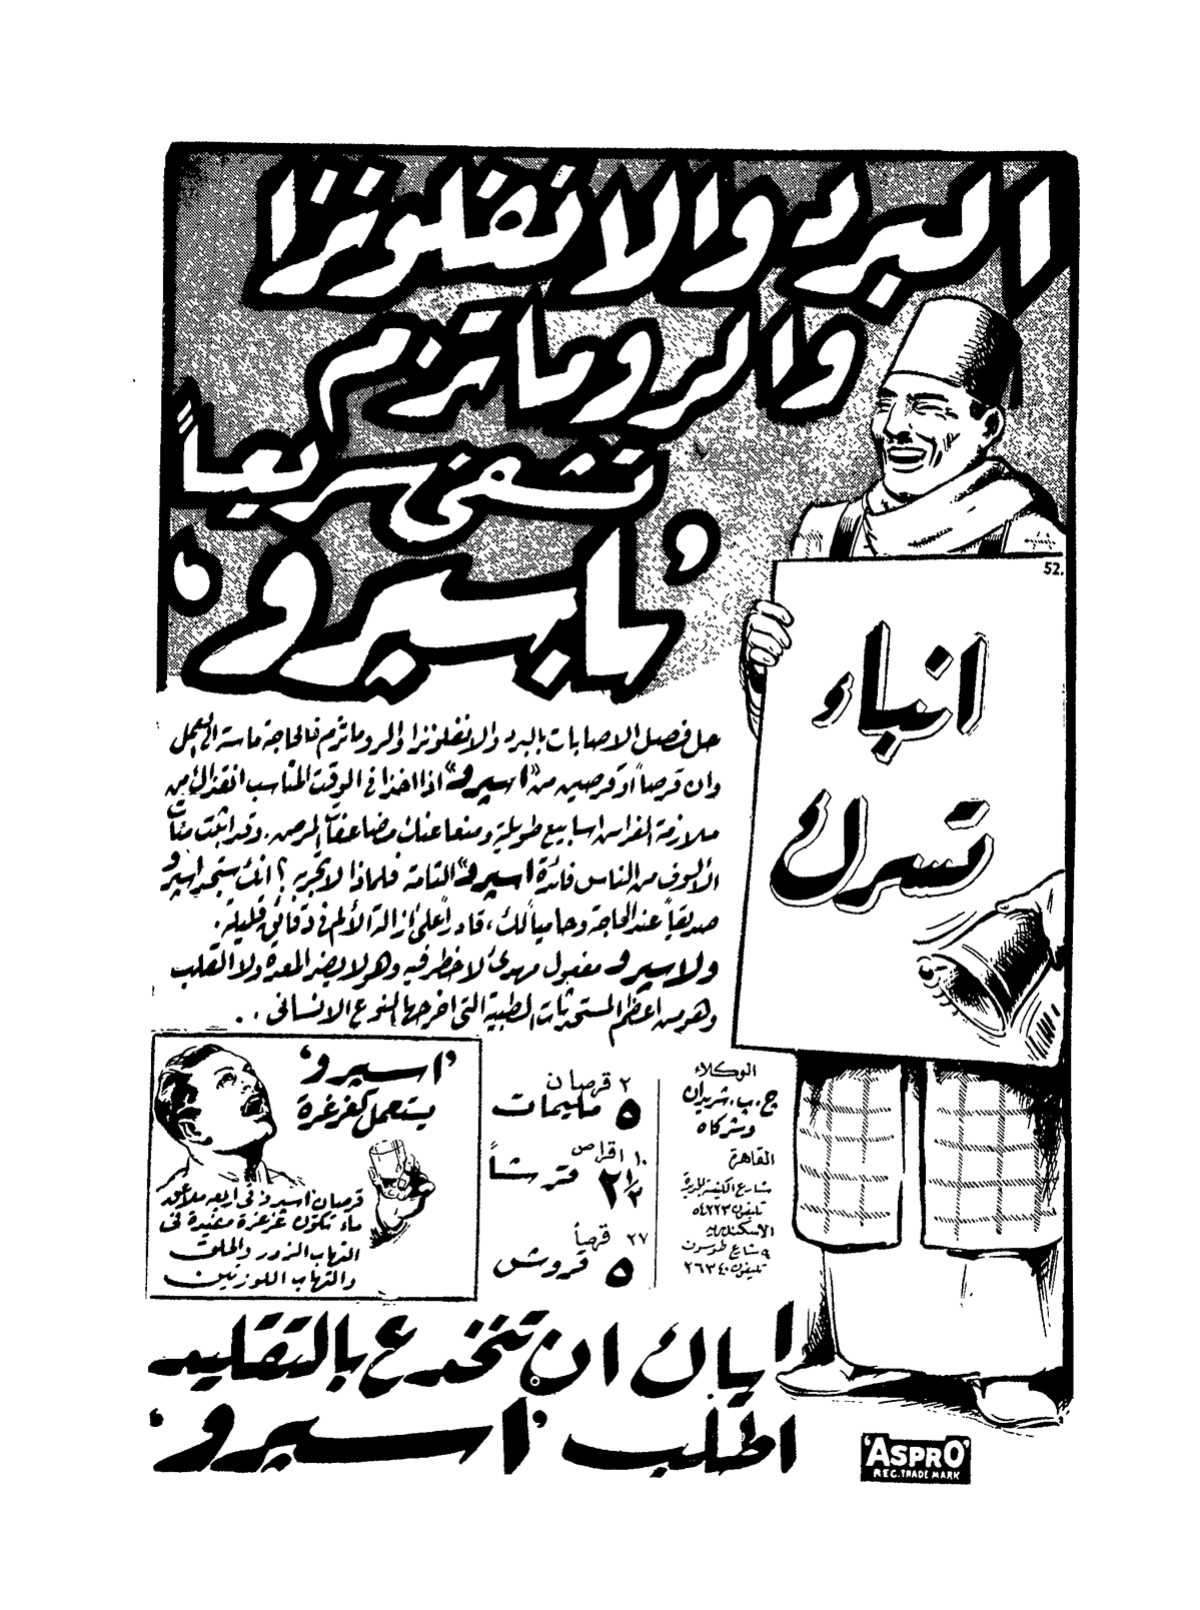 البرد والانفلونزا
والروماتزم
تشفى سريعاً
'باسبرو'
52.
انباء
تسرك
حل فصل الاصابات بالبرد والانفلونزا والروماتزم فالحاجة ماسة الى العمل
وان قرصاً او قرصين من "اسبرو" اذا اخذا فى الوقت المناسب انقذاك من
ملازمة الفراش اسابيع طويلة ومنعا عنك مضاعفات المرض. وقد اثبتت مئات
الألوف من الناس فائدة "اسبرو" التامة فلماذا لا تجربه؟ انك ستجد اسبرو
صديقاً عند الحاجة وحامياً لك، قادراً على ازالة الألم فى دقائق قليلة.
ولاسبرو مفعول مهدئ لا خطر فيه وهو لا يضر المعدة ولا القلب
وهو من اعظم المستحدثات الطبية التى اخرجها النوع الانسانى..
'اسبرو'
يستعمل كغرغرة
قرصان اسبرو فى اربع ملاعق
ماء تكون غرغرة مفيدة فى
التهاب الزور والحلق
والتهاب اللوزتين
٢ قرصان
٥ مليمات
١٠ اقراص
٢١/٢ قرشاً
٢٧ قرصاً
٥ قروش
الوكلاء
ج. ب. شريدان
وشركاه
القاهرة
شارع الكنيسة
تليفون ٥٤٢٢٣
الاسكندرية
٩ شارع طوسون
تليفون ٢٦٣٤٠
اياك ان تنخدع بالتقليد
اطلب 'اسبرو'
'ASPRO'
REG. TRADE MARK